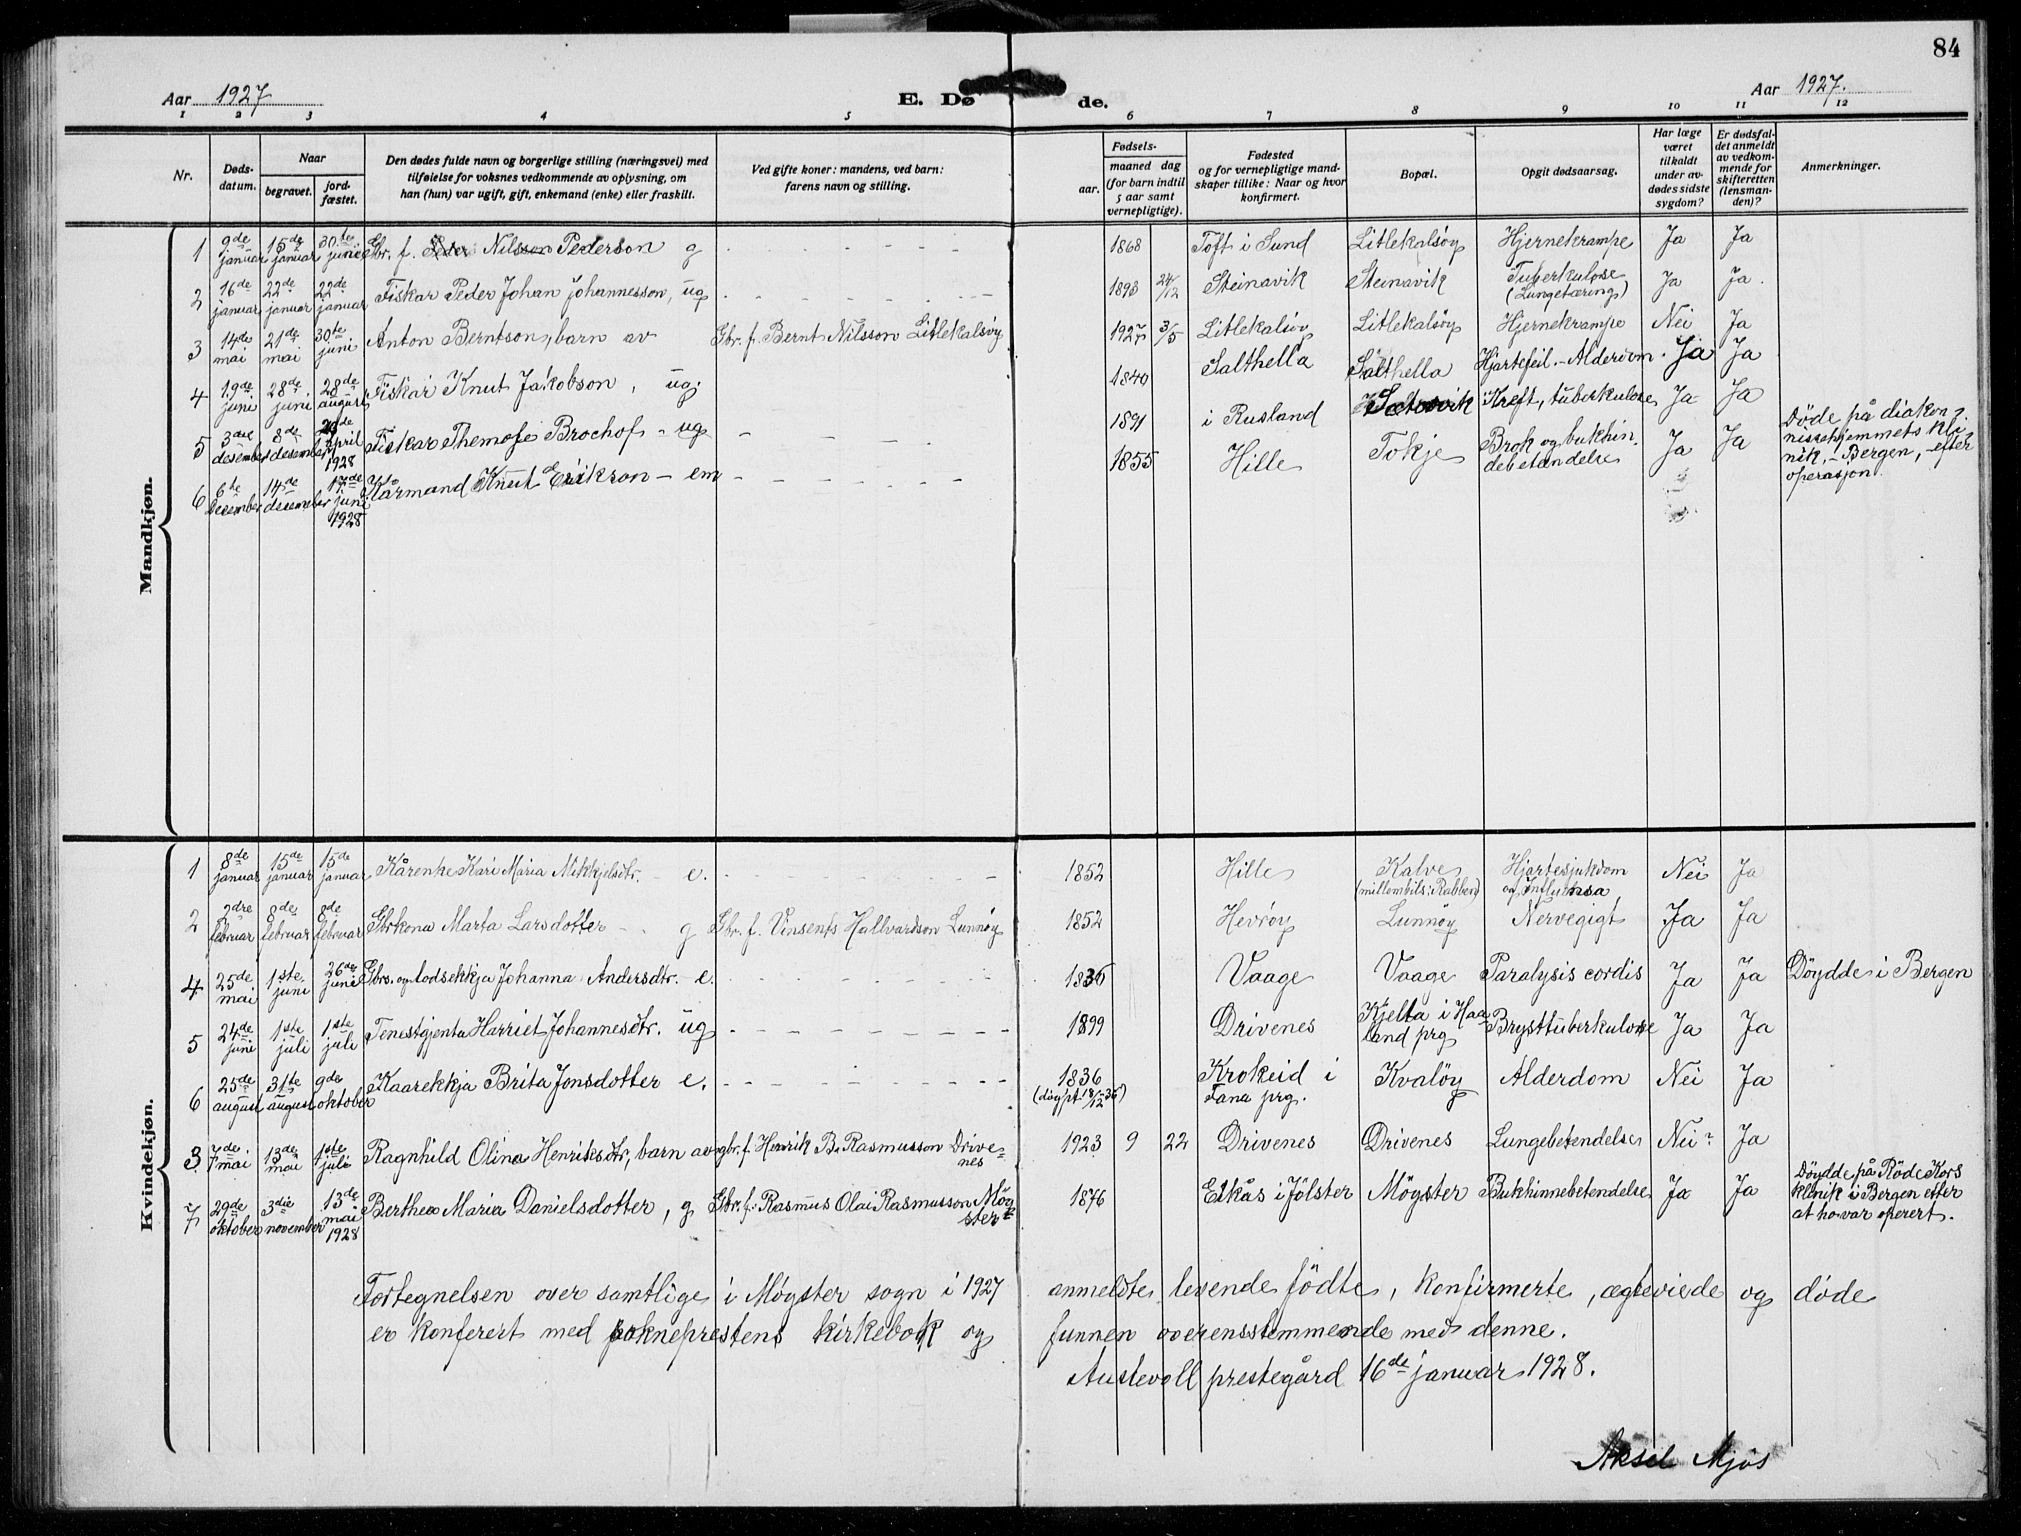 84
Aar 1927.
E. Dø de.
Aar 1927.
1 2 3 4 5 6 7 8 9 10 11 12
Nr.
Døds-
datum.
Naar
begravet.
jord-
fæstet.
Den dødes fulde navn og borgerlige stilling (næringsvei) med
tilføielse for voksnes vedkommende av oplysning, om
han (hun) var ugift, gift, enkemand (enke) eller fraskilt.
Ved gifte koner: mandens, ved barn:
farens navn og stilling.
Fødsels-
aar.
maaned dag
(for barn indtil
5 aar samt
vernepligtige).
Fødested
og for vernepligtige mand-
skaper tillike: Naar og hvor
konfirmert.
Bopæl.
Opgit dødsaarsag.
Har læge
været
tilkaldt
under av-
dødes sidste
sygdom?
Er dødsfal-
det anmeldt
av vedkom-
mende for
skifteretten
(lensman-
den)?
Anmerkninger.
Mandkjøn.
1 9de januar 15de januar 30te juni Gbr. f. Nilsson Pederson g 1868 Toft i Sund Litlekalsøy Hjernekrampe Ja Ja
2 16de januar 22de januar 22de januar Fiskar Peder Johan Johannesson, ug 1898 24/12 Steinavik Steinavik Tuberkulose (Lungetæring) Ja Ja.
3 14de mai 21de mai 30te juni Anton Berntson, barn av Gbr. f. Bernt Nilsson Litlekalsøy 1927 3/5 Litlekalsøy Litlekalsøy Hjernekrampe Nei Ja
4 19de juni 28de juni 28de august Fiskar Knut Jakobson, ug. 1840 Salthella Salthella Hjartefeil - Alderdom. Ja Ja
5 3dje desember 8de desember april 1928 Fiskar Themofe Brochof - ug 1891 i Rusland Sætrevik Kreft, tuberkulose Ja Ja Døde på diakon-
nissehjemmets kli-
nik, - Bergen, - efter
operasjon.
6 6te desember 14de desember 17de juni 1928 Kårmand Knut Erikson - em 1855 Hille Tokje Brok og bukhin-
debetendelse Ja Ja
Kvindekjøn.
1 8de januar 15de januar 15de januar Kårenke Kari Maria Mikkjelsdtr. e. 1852 Hille Kalve (millombils: Rabben) Hjartesjukdom og Influensa Nei Ja
2 2dre februar 8de februar 8de februar Gbrkona Marta Larsdotter g Gbr. f. Vinsents Hallvardson Lunnøy 1852 Hevrøy Lunnøy Nervegigt Ja Ja
4 25de mai 1ste juni 26de juni Gbrs. og lodsekkja Johanna Andersdtr. e. 1836 Vaage Vaage Paralysis cordis Ja Ja Døydde i Bergen
5 24de juni 1ste juli 1ste juli Tenestgjenta Harriet Johannesdtr. ug 1899 Drivenes Kjelta i Haa-
land prg Brysttuberkulose Ja Ja
6 25de august 31te august 9de oktober Kaarekkja Brita Jonsdotter e. 1836 (døypt 18/12 36) Krokeid i
Fana prg. Kvaløy Alderdom Nei Ja
3. 7de mai 13de mai 1ste juli Ragnhild Olina Henriksdtr, barn av gbr. f. Henrik B. Rasmusson Drive-
nes 1923 9 22 Drivenes Drivenes Lungebetendelse Nei Ja
7 29de oktober 3die november 13de mai 1928 Berthea Maria Danielsdotter, g Gbr. f. Rasmus Olai Rasmusson Møg-
ster 1876 Eikås i Jølster Møgster Bukhinnebetendelse Ja Ja Døydde på Røde Kors
klinik i Bergen efter
at ho var operert.
Fortegnelsen over samtlige i Møgster sogn i 1927 anmeldte levende fødte, konfirmerte, ægteviede og døde
er konferert med sokneprestens kirkebok og funnen overensstemmende med denne.
Austevoll prestegård 16de januar 1928.
Aksel Mjøs